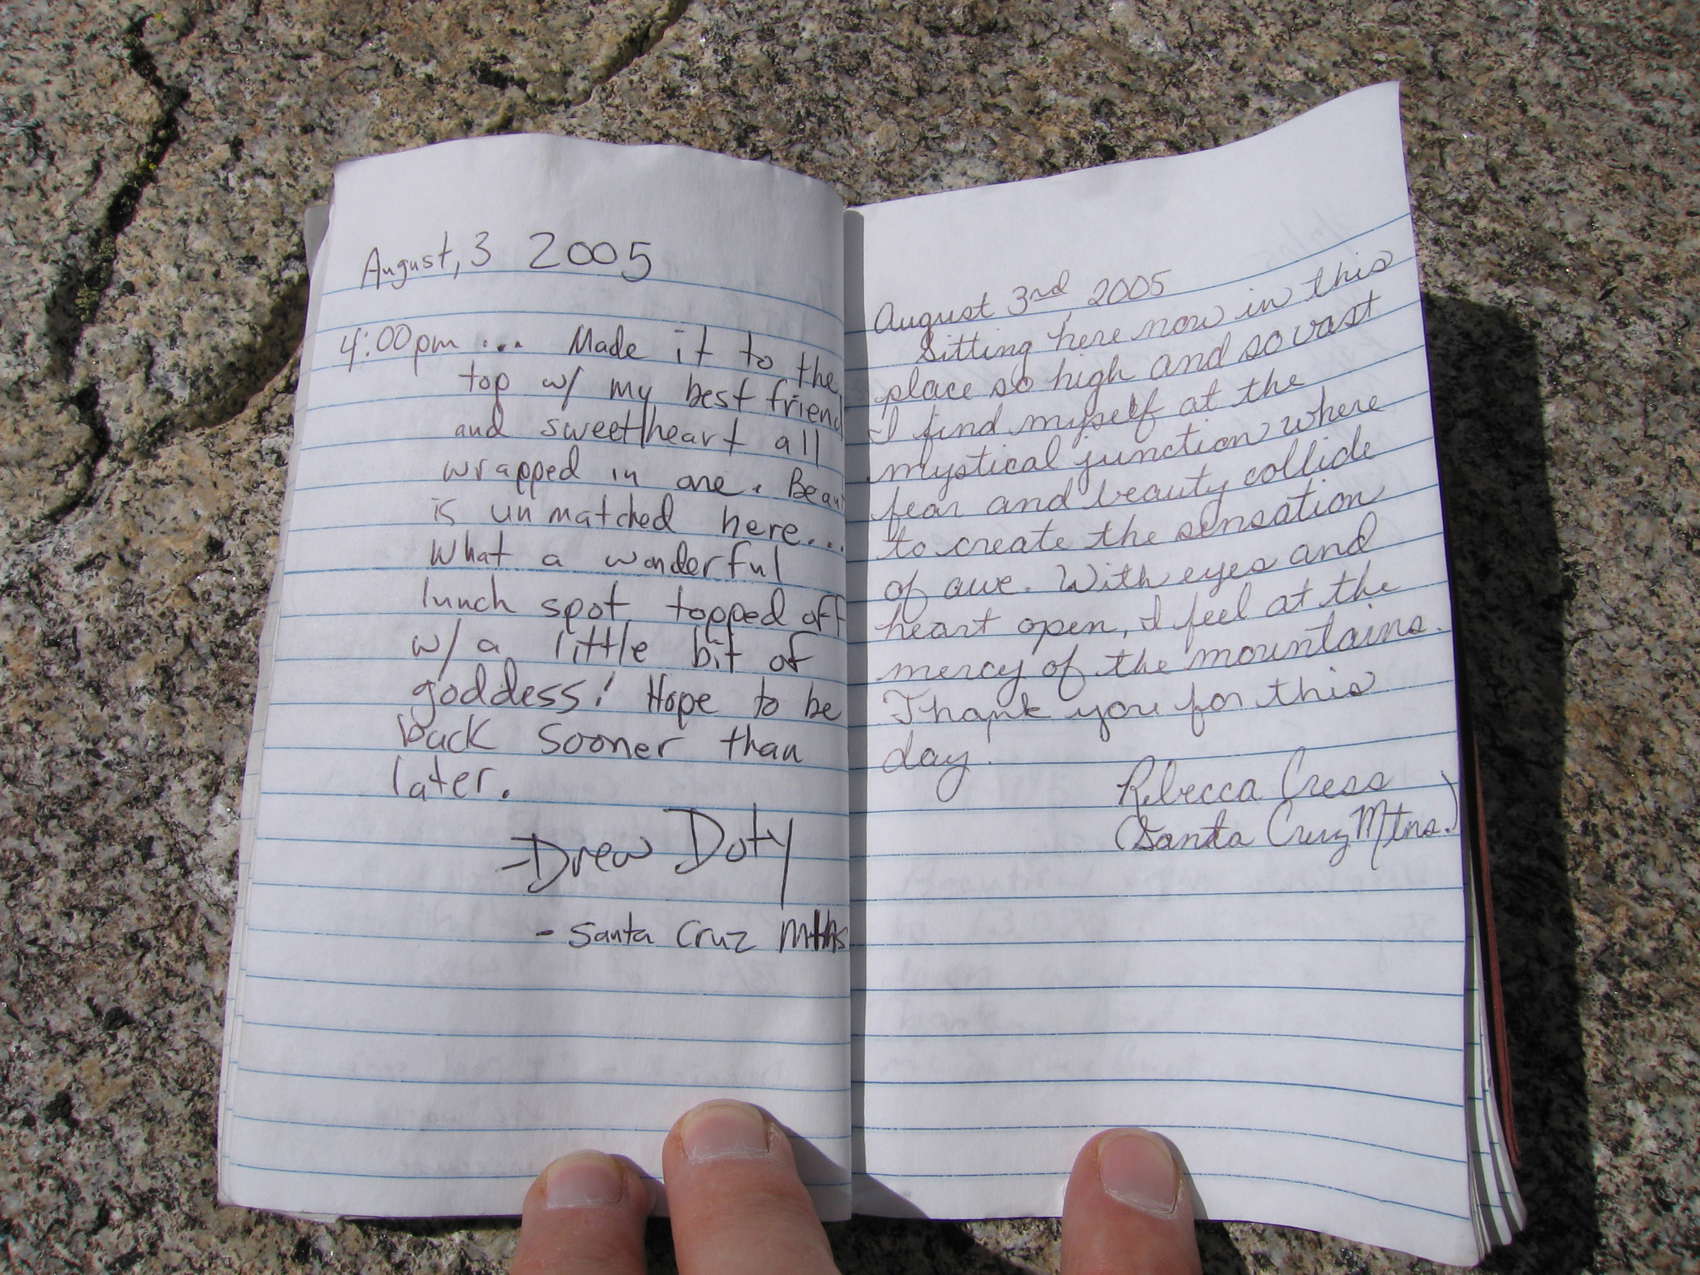 August, 3 2005
4:00pm ... Made it to the
top w/ my best friend
and sweetheart all
wrapped in one. Beau
is unmatched here...
What a wonderful
lunch spot topped off
w/ a little bit of
goddess! Hope to be
back sooner than
later.
- Drew Doty
- Santa Cruz Mtns
August 3rd, 2005
Sitting here now in this
place so high and so vast
I find myself at the
mystical junction where
fear and beauty collide
to create the sensation
of awe. With eyes and
heart open, I feel at the
mercy of the mountains.
Thank you for this
day.
Rebecca Cress
(Santa Cruz Mtns.)